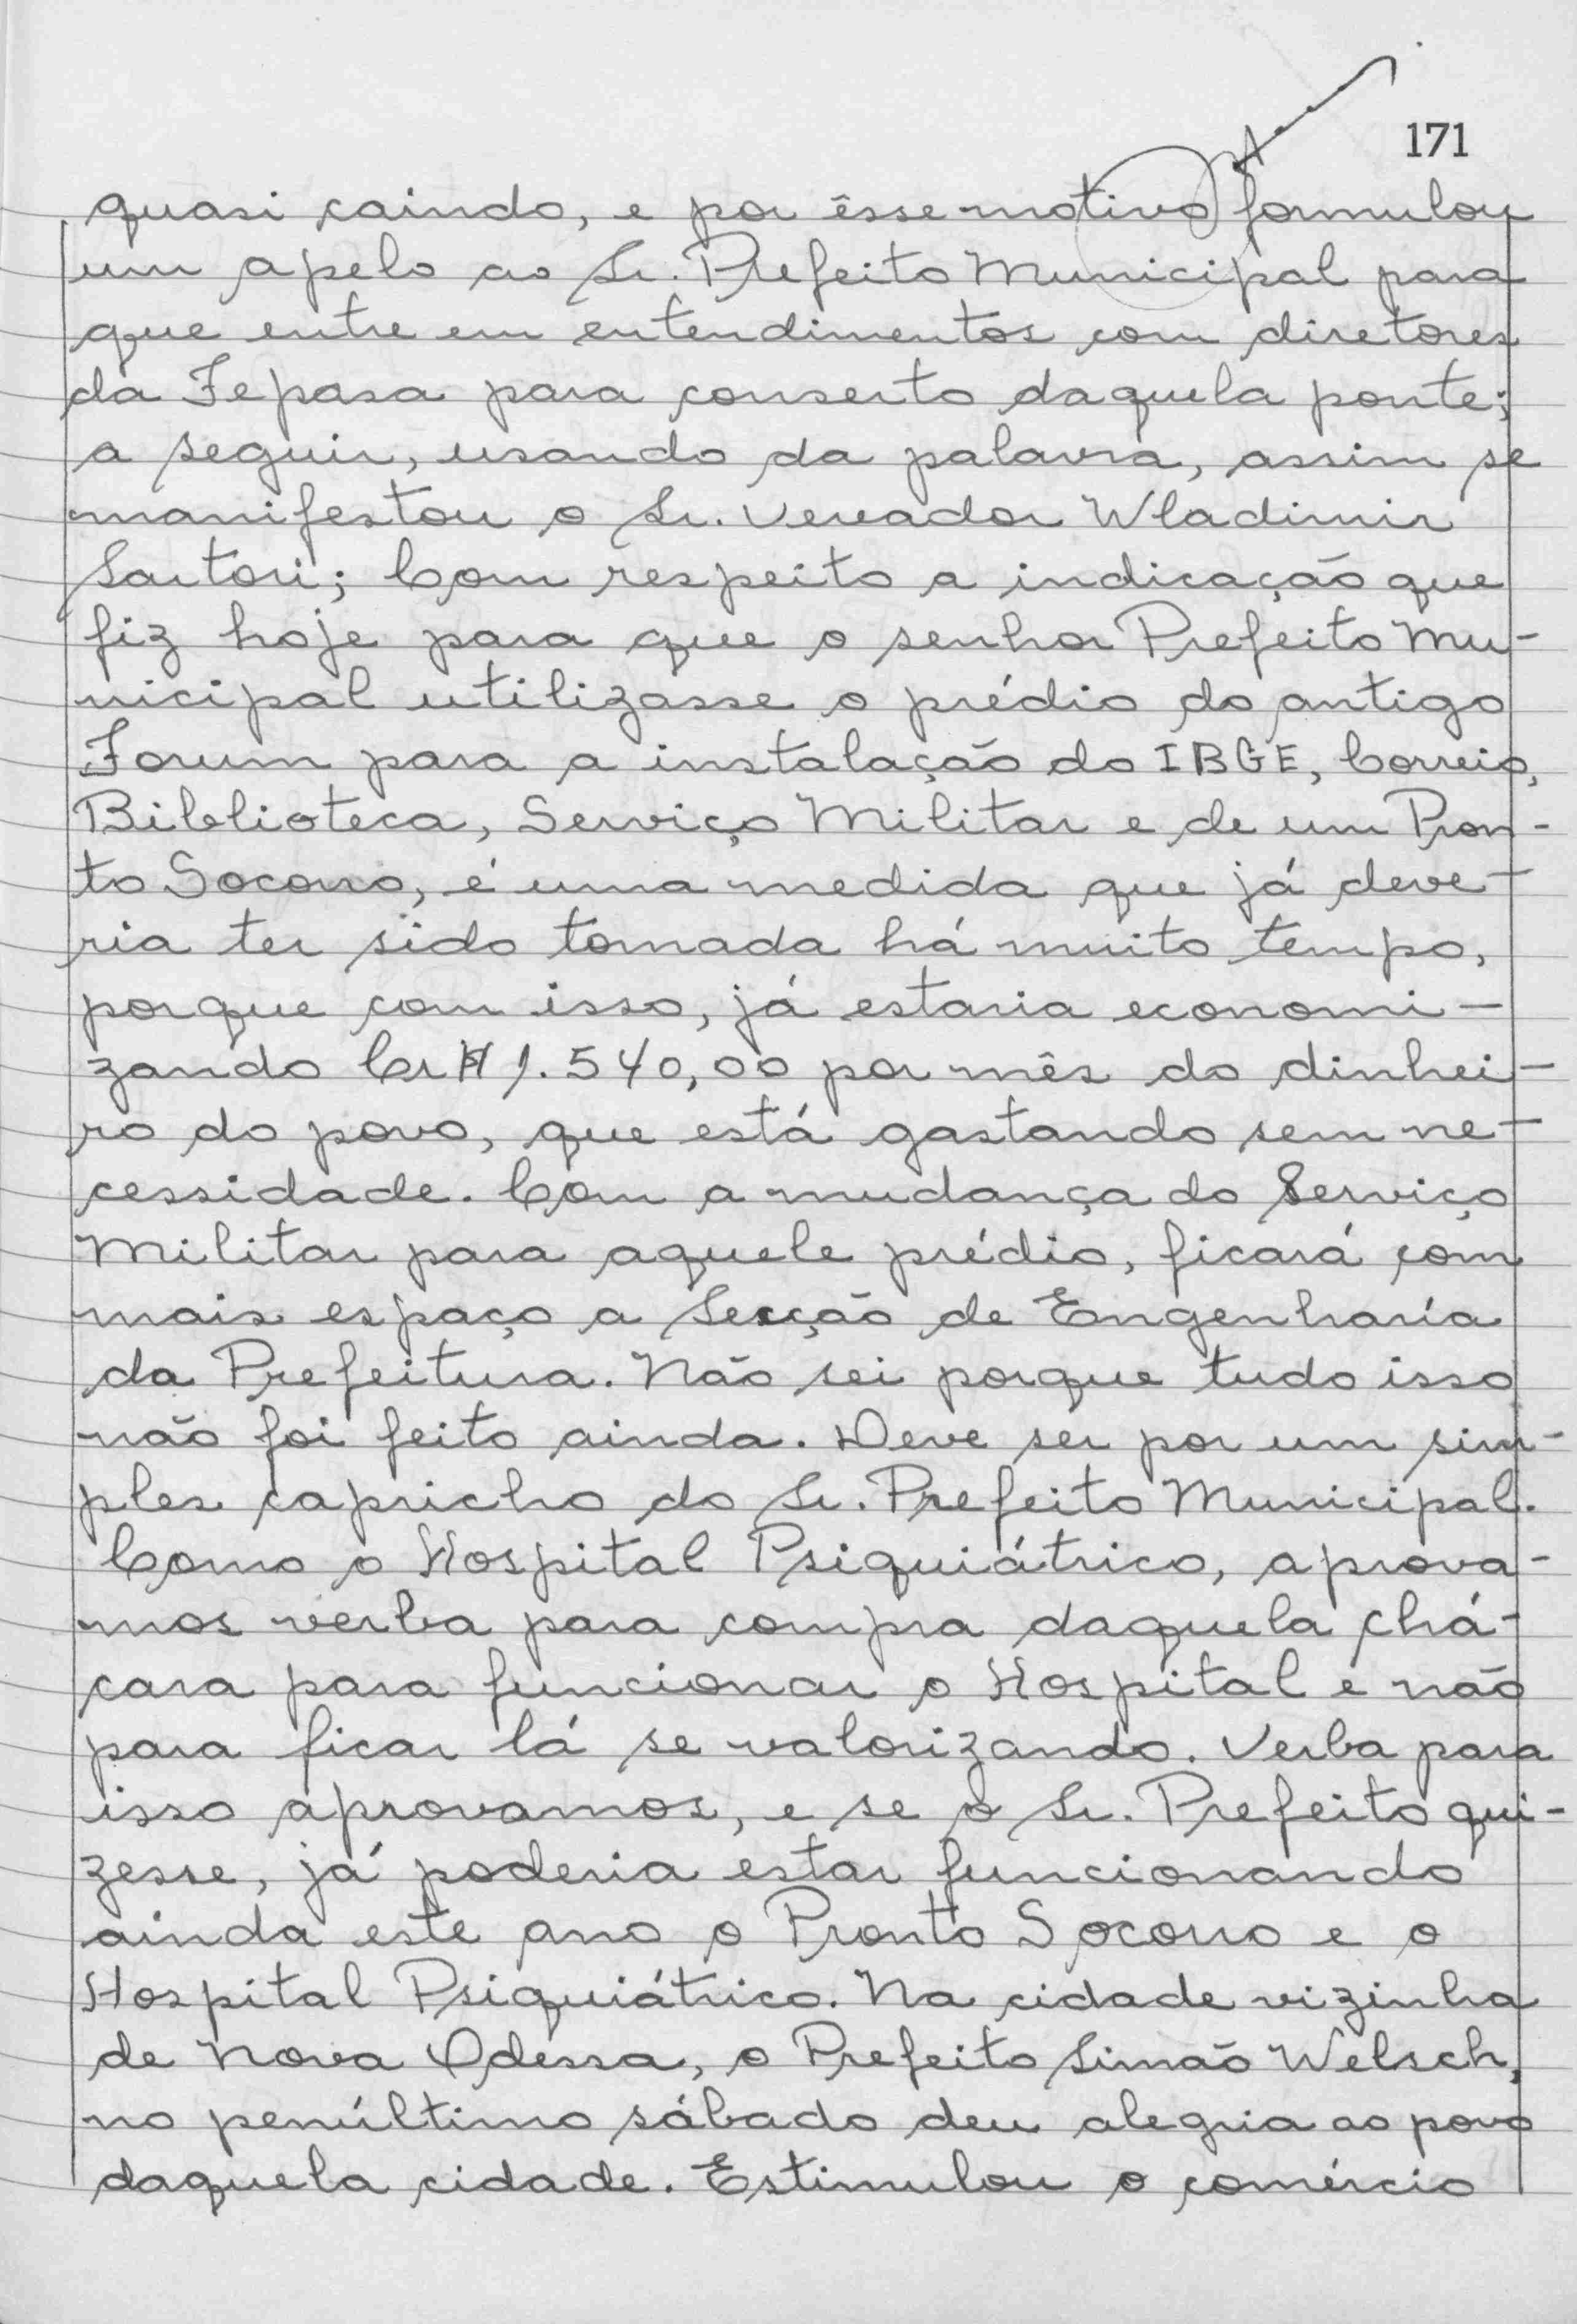 171
quasi caindo, e por êsse motivo formulou
um apelo ao Sr. Prefeito Municipal para
que entre em entendimentos com diretores
da Fepasa para conserto daquela ponte;
a seguir, usando da palavra, assim se
manifestou o Sr. Vereador Wladimir
Sartori; Com respeito a indicação que
fiz hoje para que o senhor Prefeito Mu-
nicipal utilizasse o prédio do antigo
Forum para a instalação do IBGE, Correio,
Biblioteca, Serviço Militar e de um Pron-
to Socorro, é uma medida que já deve-
ria ter sido tomada há muito tempo,
porque com isso, já estaria economi-
zando Cr$ 1.540,00 por mês do dinhei-
ro do povo, que está gastando sem ne-
cessidade. Com a mudança do Serviço
Militar para aquele prédio, ficará com
mais espaço a Secção de Engenharia
da Prefeitura. Não sei porque tudo isso
não foi feito ainda. Deve ser por um sim-
ples capricho do Sr. Prefeito Municipal.
Como o Hospital Psiquiátrico, aprova-
mos verba para compra daquela chá-
cara para funcionar o Hospital e não
para ficar lá se valorizando. Verba para
isso aprovamos, e se o Sr. Prefeito qui-
zesse, já poderia estar funcionando
ainda este ano o Pronto Socorro e o
Hospital Psiquiátrico. Na cidade vizinha
de Nova Odessa, o Prefeito Simão Welsch,
no penúltimo sábado deu alegria ao povo
daquela cidade. Estimulou o comércio